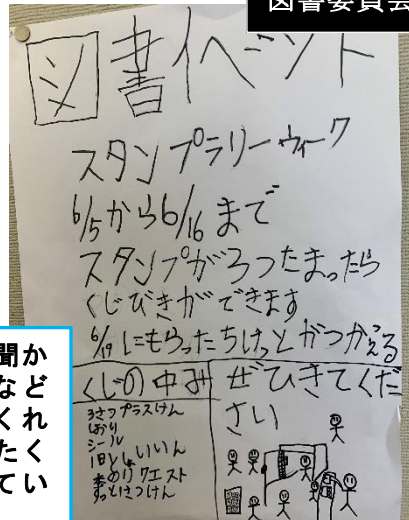 図書委員会
図書イベント
スタンプラリーウィーク
6/5から6/16まで
スタンプがろつたまったら
くじびきができます
6/19にもらったちけっとがつかえる
くじの中み
3さつプラスけん
しおり
シール
1日としょいいん
本のリクエスト
ぜひきてくだ
さい
聞か
など
くれ
たく
てい